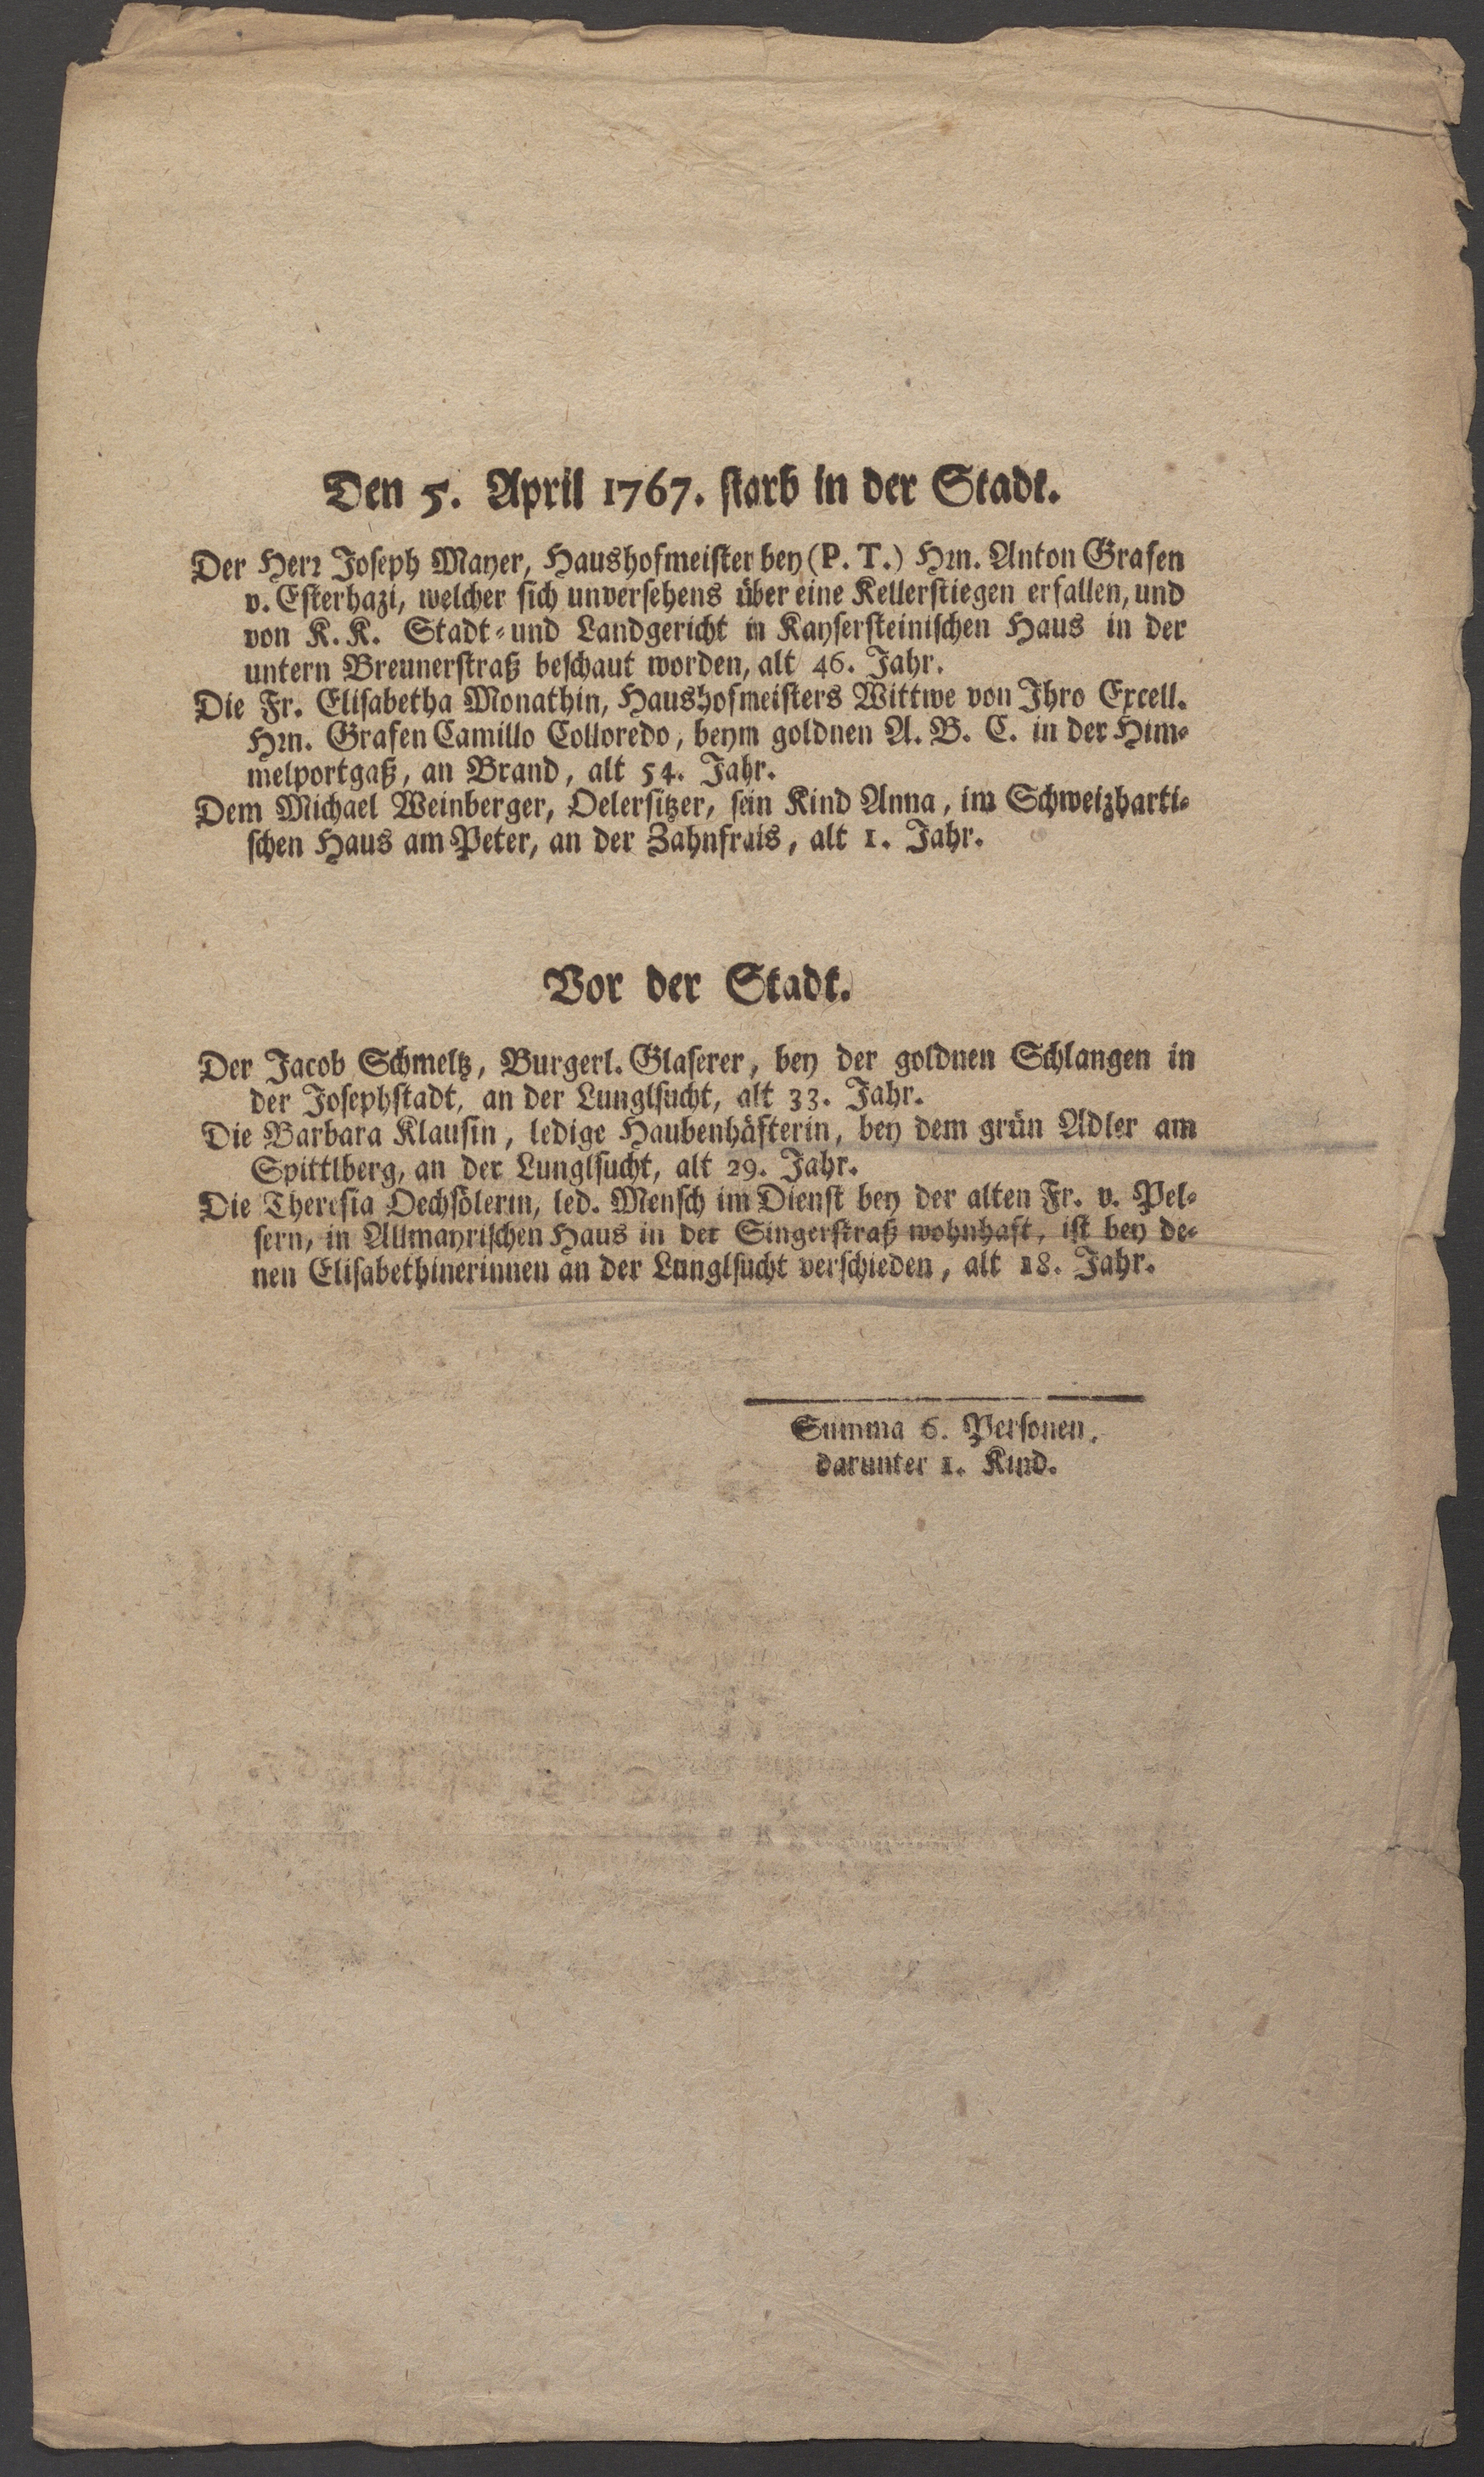 Den 5. April 1767. starb in der Stadt.
Der Herr Joseph Mayer, Haushofmeister bey (P. T.) Hrn. Anton Grafen
v. Esterhazi, welcher sich unversehens über eine Kellerstiegen erfallen, und
von K. K. Stadt- und Landgericht in Kaysersteinischen Haus in der
untern Breunerstraß beschaut worden, alt 46. Jahr.
Die Fr. Elisabetha Monathin, Haushofmeisters Wittwe von Ihro Excell.
Hrn. Grafen Camillo Colloredo, beym goldnen A. B. C. in der Him-
melportgaß, an Brand, alt 54. Jahr.
Dem Michael Weinberger, Oelersitzer, sein Kind Anna, im Schweizharti-
schen Haus am Peter, an der Zahnfrais, alt 1. Jahr.
Vor der Stadt.
Der Jacob Schmeltz, Burgerl. Glaserer, bey der goldnen Schlangen in
der Josephstadt, an der Lunglsucht, alt 33. Jahr.
Die Barbara Klausin, ledige Haubenhäfterin, bey dem grün Adler am
Spittlberg, an der Lunglsucht, alt 29. Jahr.
Die Theresia Oechsölerin, led. Mensch im Dienst bey der alten Fr. v. Pel-
sern, in Allmayrischen Haus in der Singerstraß wohnhaft, ist bey de-
nen Elisabethinerinnen an der Lunglsucht verschieden, alt 18. Jahr.
Summa 6. Personen,
darunter 1. Kind.